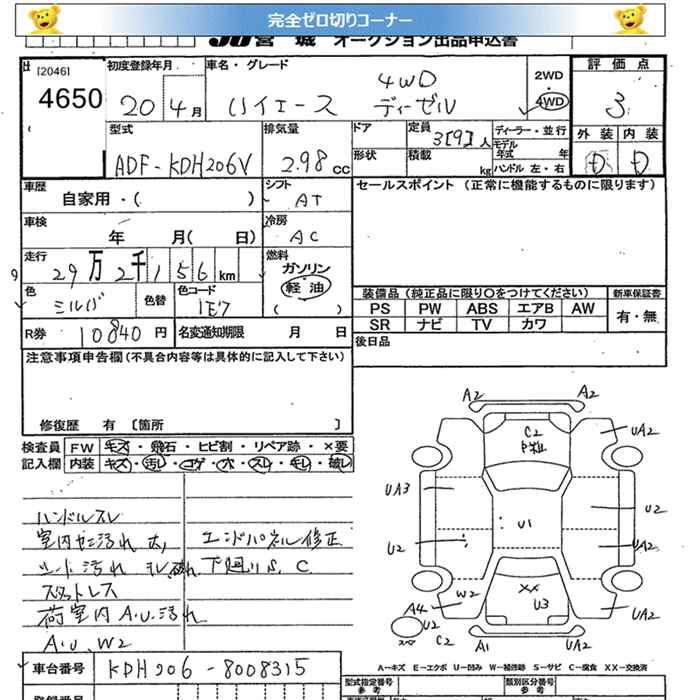 完全ゼロ切りコーナー
JU宮城 オークション出品申込書
[2046]
4650
初度登録年月
20年4月
車名・グレード
4WD
ハイエース ディーゼル
2WD
・
4WD
評価点
3
外装 内装
D D
型式
ADF-KDH206V
排気量
2.98cc
ドア
形状
定員
3[9]人
積載
kg
ディーラー・並行
モデル年式 年
ハンドル 左・右
車歴
自家用・( )
シフト
AT
セールスポイント (正常に機能するものに限ります)
車検
年 月( 日)
冷房
AC
走行
29万2千156km
燃料
ガソリン
軽油
( )
色
シルバ
色替
色コード
1E7
装備品 (純正品に限り○をつけてください)
新車保証書
PS PW ABS エアB AW
SR ナビ TV カワ
有・無
R券
10840円
名変通知期限 月 日
後日品
注意事項申告欄 (不具合内容等は具体的に記入して下さい)
修復歴 有 [箇所 ]
検査員記入欄
FW キズ・飛石・ヒビ割・リペア跡・×要
内装 キズ・汚し・コゲ・穴・スレ・キレ・破レ
ハンドルスレ
室内ゼニ汚れ大 エンドパネル修正
シート汚れ スレ 破れ 下廻りS、C
荷室内A.U.汚れ
A.U、W2
A2 A2
C2
UA2
UA3
U1
U2
U2
UA2
W2
XX
U3
A4
U2
C2
UA2
A1 UA2
A-キズ E-エクボ U-凹み W-補修跡 S-サビ C-腐食 XX-交換済
車台番号
KDH206-8008315
型式指定番号
参考
類別区分番号
参考
登録番号